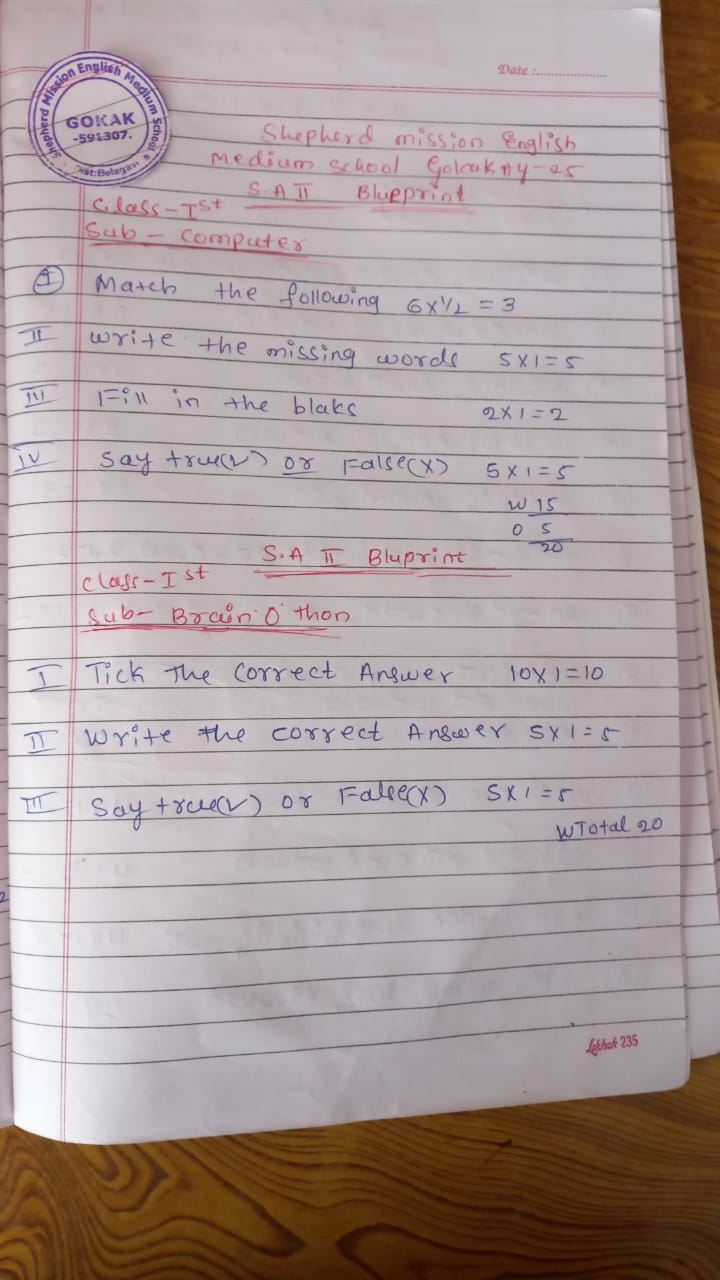 Shepherd Mission English Medium School
GOKAK
-591307.
Dist:Belagavi
Date :...................
Shepherd mission English
Medium School Gokak
S.A II Blueprint
Class-Ist
Sub - Computer
I Match the following 6x1/2 = 3
II write the missing words 5X1=5
III Fill in the blaks 2X1=2
IV Say true(✓) or False(X) 5X1=5
W 15
O 5
20
S.A II Bluprint
Class-Ist
Sub- Brain'O'thon
I Tick The Correct Answer 10X1=10
II Write the correct Answer 5X1=5
III Say true(✓) or False(X) 5X1=5
WTotal 20
2
Lekhak 235